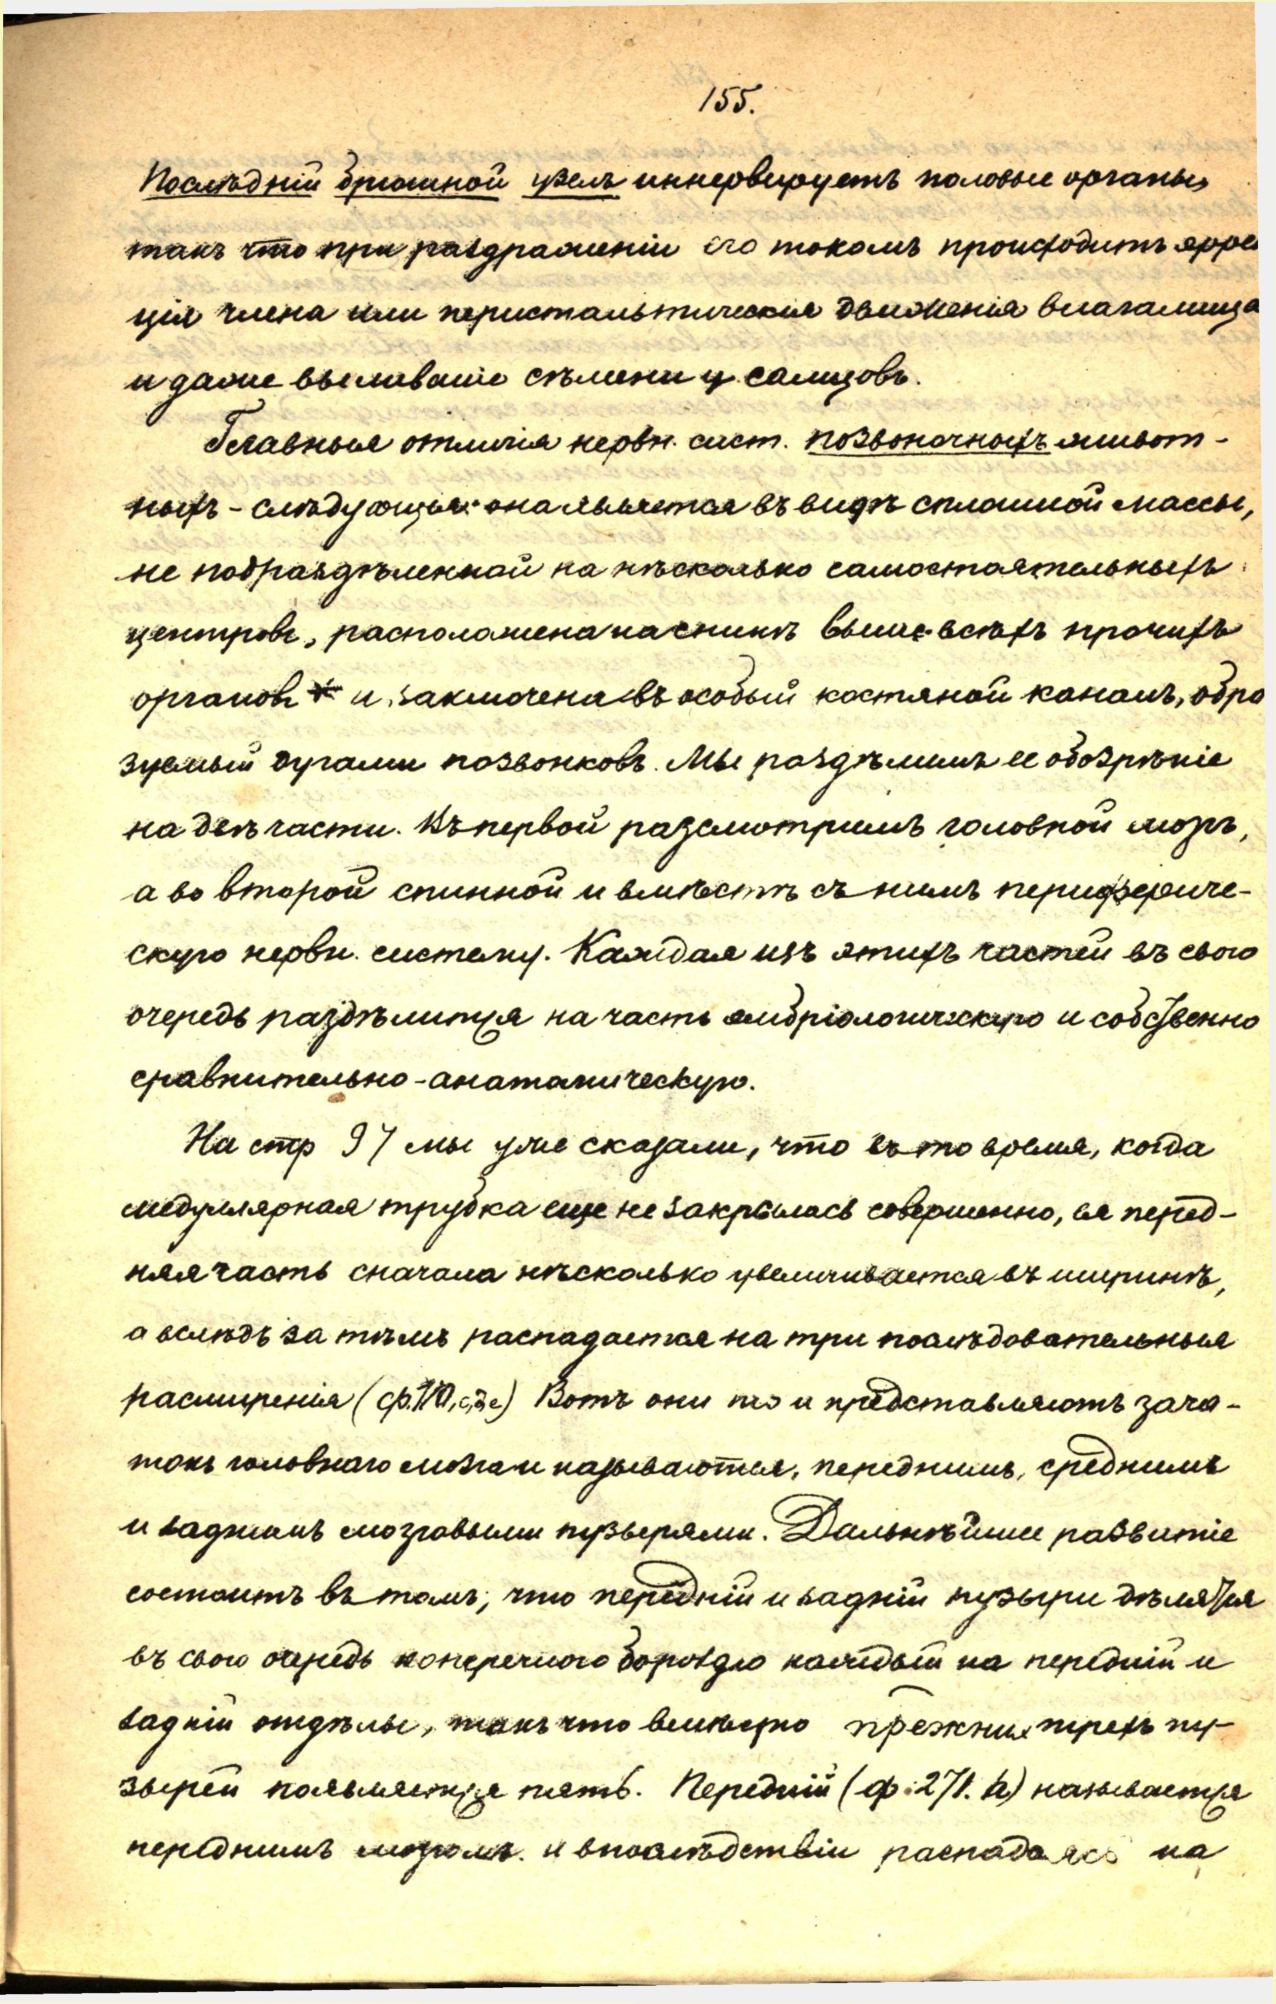 155.
Послѣднiй брюшной узелъ иннервируетъ половые органы,
такъ что при раздраженiи его токомъ происходитъ эррек
цiя члена или перистальтическiя движенiя влагалища
и даже выливанiе сѣмени у самцовъ.
Главныя отличiя нервн. сист. позвоночныхъ живот-
ныхъ - слѣдующiя: она является въ видѣ сплошной массы,
не подраздѣленной на нѣсколько самостоятельныхъ
центровъ, расположена на спинѣ выше всѣхъ прочихъ
органовъ и заключена въ особый костяной каналъ, обра
зуемый дугами позвонковъ. Мы раздѣлимъ ее обозрѣнiе
на двѣ части. Въ первой разсмотримъ головной мозгъ,
а во второй спинной и вмѣстѣ съ нимъ перифериче-
скую нервн. систему. Каждая изъ этихъ частей въ свою
очередь раздѣлится на часть эмбрiологическую и собственно
сравнительно-анатомическую.
На стр 97 мы уже сказали, что въ то время, когда
медуллярная трубка еще не закрылась совершенно, ея перед-
няя часть сначала нѣсколько увеличивается въ ширинѣ,
а вслѣдъ за тѣмъ распадается на три послѣдовательныя
расширенiя (ф. Вотъ они то и представляютъ зача-
токъ головнаго мозга и называются, переднимъ, среднимъ
и заднимъ мозговыми пузырями. Дальнѣйшее развитiе
состоитъ въ томъ, что переднiй и заднiй пузыри дѣлятся
въ свою очередь поперечною бороздою каждый на переднiй и
заднiй отдѣлы, такъ что вмѣсто прежних трехъ пу-
зырей появляются пять. Переднiй (ф. 271. h) называется
переднимъ мозгомъ и впослѣдствiи распадаясь на